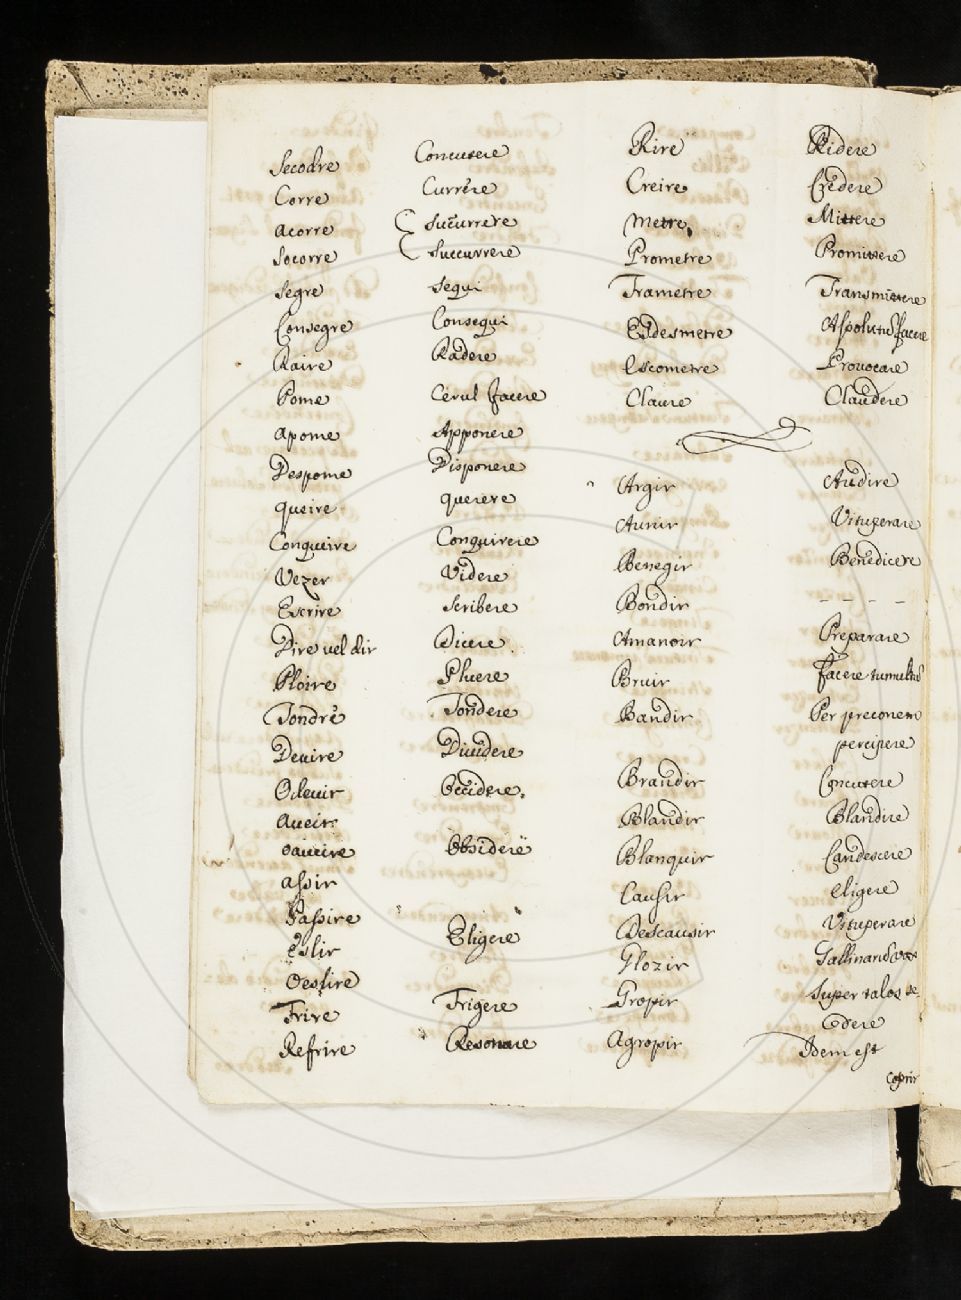 Secodre Concutere
Corre Currere
acorre Sucurrere
Socorre Succurrere
Segre Sequi
Consegre Consequi
Raire Radere
Pome Cerul facere
apome Apponere
Despome Disponere
queire querere
Conqueire Conquirere
Vezer Videre
Escrire Scribere
Dire vel dir Dicere
Ploire Pluere
Tondre Tondere
Deuire Diuidere
Ocleuir Occidere
aueir
oaueire Obsidere
assir
Passire
Eslir Eligere
Oeslire
Frire Frigere
Refrire Resonare
Rire Ridere
Creire Credere
Metre Mittere
Prometre Promittere
Trametre Transmittere
Esdesmetre Assolutu facere
Escometre Prouocare
Claure Claudere
Argir Audire
Aunir Vituperare
Benegir Benedicere
Bondir - - - -
Amanoir Preparare
Bruir facere tumultu
Bandir Per preconem
percipere
Brandir Concutere
Blandir Blandire
Blanquir Candescere
Causir eligere
Descausir Vituperare
Glozir Gallinarū vox
Gropir Super talos se-
Agropir Idem est
copir